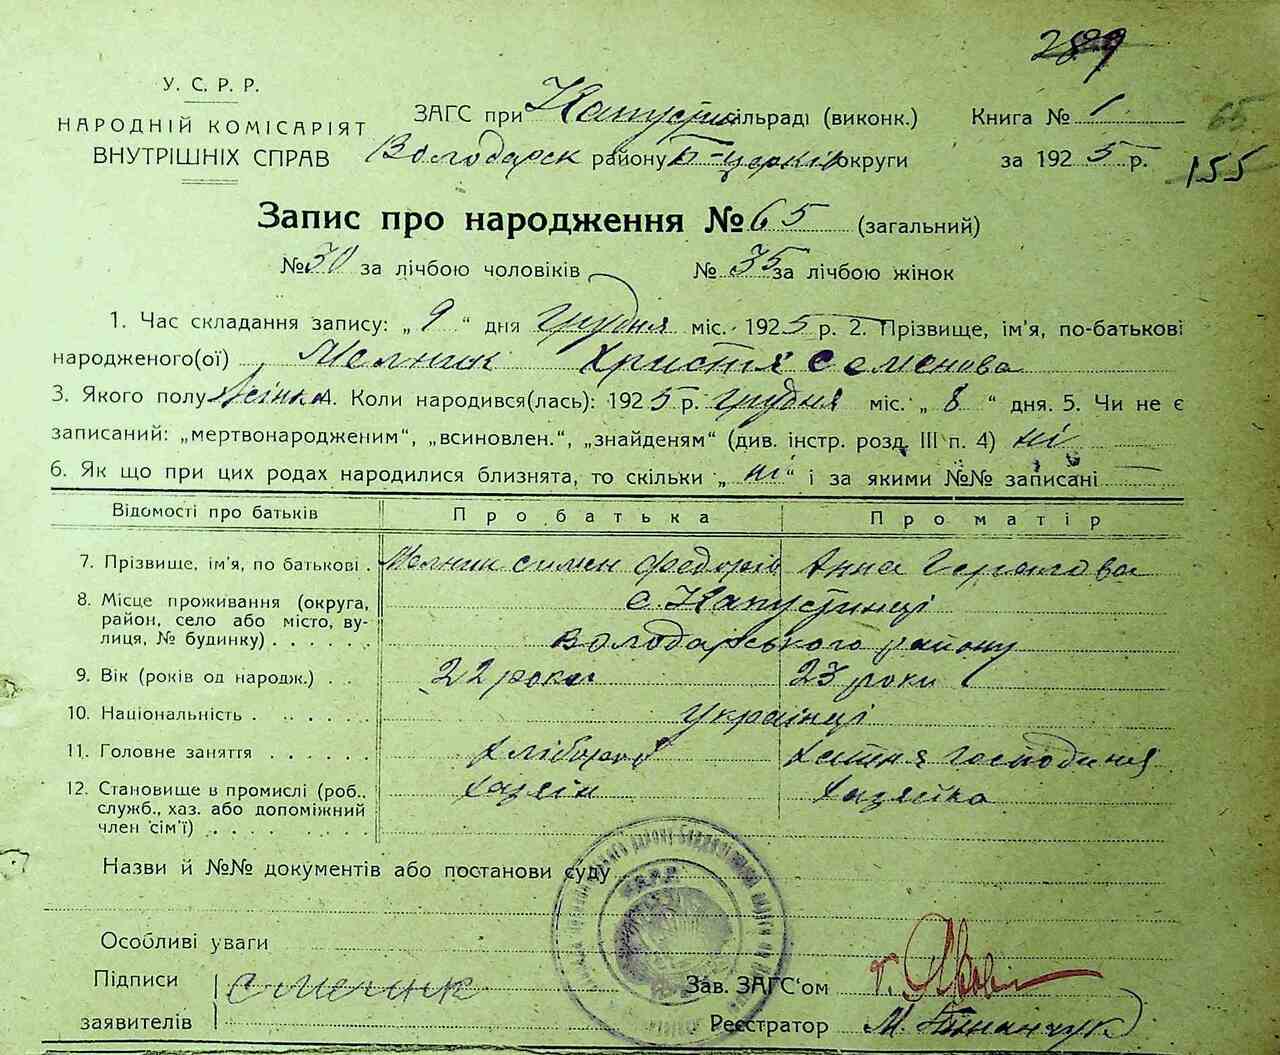 У. С. Р. Р.
НАРОДНІЙ КОМІСАРІЯТ
ВНУТРІШНІХ СПРАВ
ЗАГС при Капустин сільраді (виконк.) Книга № 1 65
Володарск району Б-церків округи за 1925 р. 155
Запис про народження № 65 (загальний)
№ 30 за лічбою чоловіків № 35 за лічбою жінок
1. Час складання запису: „ 9 “ дня грудня міс. 1925 р. 2. Прізвище, ім'я, по-батькові
народженого(ої) Мельник Христя Семенова
3. Якого полу Жінка 4. Коли народився(лась): 1925 р. грудня міс. „ 8 “ дня. 5. Чи не є
записаний: „мертвонародженим“, „всиновлен.“, „знайденям“ (див. інстр. розд. III п. 4) ні
6. Як що при цих родах народилися близнята, то скільки „ ні “ і за якими №№ записані
Відомості про батьків Про батька Про матір
7. Прізвище, ім'я, по батькові . Мельник Симен Федорів Анна
8. Місце проживання (округа, с. Капустинці
район, село або місто, ву-
лиця, № будинку) . . . . . . Володарського району
9. Вік (років од народж.) . . 22 роки 23 роки
10. Національність . . . . . . Українці
11. Головне заняття . . . . . . Хлібороб Хатня господиня
12. Становище в промислі (роб., хазяїн хазяйка
служб., хаз. або допоміжний
член сім'ї) . . . . . . . .
Назви й №№ документів або постанови суду
Особливі уваги
Підписи С Мельник Зав. ЗАГС'ом
заявителів Реєстратор М.